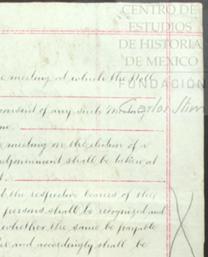 CENTRO DE
ESTUDIOS
DE HISTORIA
DE MEXICO
FUNDACIÓN
Carlos Slim
e meeting at which the Poll
of any such
meeting or the election of a
adjournment shall be taken at
the respective bearers of
persons shall be recognized and
whether the same be payable
and accordingly shall be